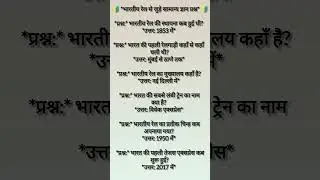 *भारतीय रेल से जुड़े सामान्य ज्ञान प्रश्न*
*प्रश्न:* भारतीय रेल की स्थापना कब हुई थी?
*उत्तर: 1853 में*
*प्रश्न:* भारत की पहली रेलगाड़ी कहाँ से कहाँ
चली थी?
*उत्तर: मुंबई से ठाणे तक*
*प्रश्न:* भारतीय रेल का मुख्यालय कहाँ है?
*उत्तर: नई दिल्ली में*
*प्रश्न:* भारत की सबसे लंबी ट्रेन का नाम
क्या है?
*उत्तर: विवेक एक्सप्रेस*
*प्रश्न:* भारतीय रेल का प्रतीक चिन्ह कब
अपनाया गया?
*उत्तर: 1950 में*
*प्रश्न:* भारत की पहली तेजस एक्सप्रेस कब
शुरू हुई?
*उत्तर: 2017 में*